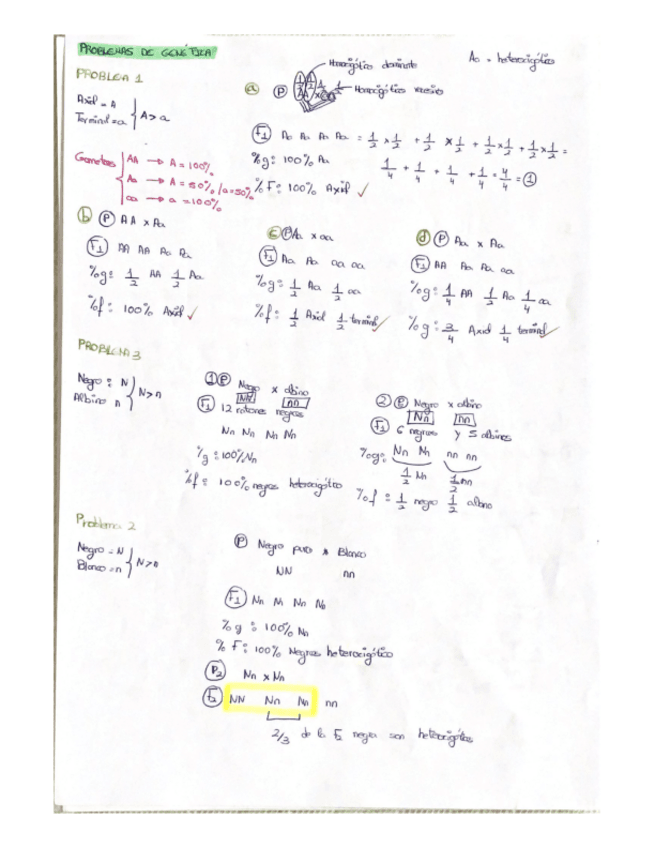 PROBLEMAS DE GENÉTICA
Aa = heterocigótico
PROBLEMA 1
Axial = A
Terminal = a } A > a
Gametos { AA → A = 100%
Aa → A = 50% / a = 50%
aa → a = 100%
Homocigótico dominante
Homocigótico recesivo
a) P
F1 Aa Aa Aa Aa = 1/2 x 1/2 + 1/2 x 1/2 + 1/2 x 1/2 + 1/2 x 1/2 =
1/4 + 1/4 + 1/4 + 1/4 = 4/4 = 1
%g: 100% Aa
%F: 100% Axial ✓
b) P AA x Aa
F1 AA AA Aa Aa
%g: 1/2 AA 1/2 Aa
%f: 100% Axial ✓
c) P Aa x aa
F1 Aa Aa aa aa
%g: 1/2 Aa 1/2 aa
%f: 1/2 Axial 1/2 terminal ✓
d) P Aa x Aa
F1 AA Aa Aa aa
%g: 1/4 AA 1/2 Aa 1/4 aa
%g: 3/4 Axial 1/4 terminal ✓
PROBLEMA 3
Negro: N
Albino n } N > n
1) P Negro x albino
NN nn
F1 12 ratones negros
Nn Nn Nn Nn
%g = 100% Nn
%f = 100% negros heterocigótico
2) P Negro x albino
Nn nn
F1 6 negros y 5 albinos
%g: Nn Nn nn nn
1/2 Nn 1/2 nn
%f = 1/2 negro 1/2 albino
Problema 2
Negro = N
Blanco = n } N > n
P Negro puro x Blanco
NN nn
F1 Nn Nn Nn Nn
%g: 100% Nn
% F: 100% Negros heterocigótico
P2 Nn x Nn
F2 NN Nn Nn nn
2/3 de la F2 negra son heterocigóticos